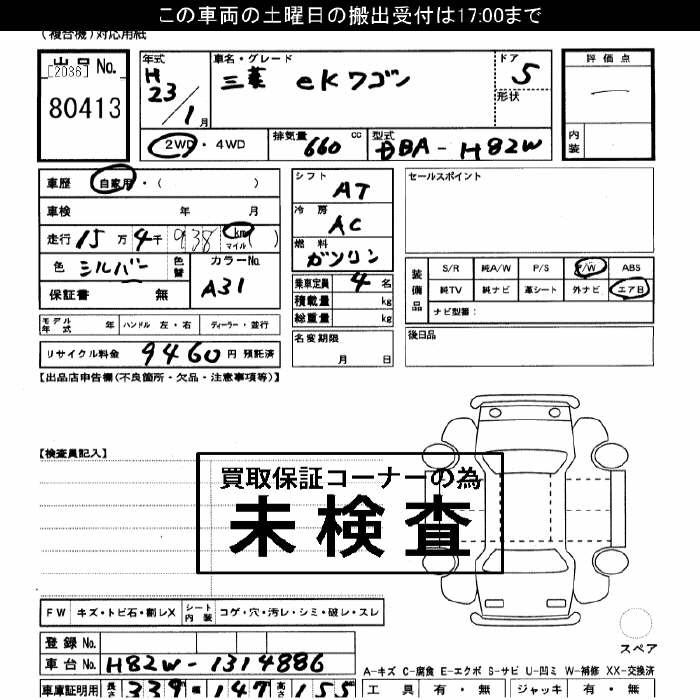 この車両の土曜日の搬出受付は17:00まで
(複合機)対応用紙
出品No.
[2036]
80413
年式
H
23
/
1月
車名・グレード
三菱 eKワゴン
ドア
5
形状
評価点
内装
2WD・4WD
排気量 660 cc
型式 DBA-H82W
車歴 自家用・( )
車検 年 月
走行 15万4千938 km マイル ( )
色 シルバー 色替
カラーNo. A31
保証書 無
シフト AT
冷房 AC
燃料 ガソリン
乗車定員 4名
積載量 kg
総重量 kg
セールスポイント
装備品
S/R 純A/W P/S P/W ABS
純TV 純ナビ 革シート 外ナビ エアB
ナビ型番:
モデル年式 年 ハンドル 左・右 ディーラー・並行
リサイクル料金 9460円 預託済
名変期限
月 日
後日品
【出品店申告欄(不良箇所・欠品・注意事項等)】
【検査員記入】
買取保証コーナーの為
未検査
FW キズ・トビ石・割レX シート内装 コゲ・穴・汚レ・シミ・破レ・スレ
登録No.
車台No. H82W-1314886
車庫証明用 長さ 339 147 高さ 155
スペア
A-キズ C-腐食 E-エクボ S-サビ U-凹ミ W-補修 XX-交換済
工具 有・無 ジャッキ 有・無